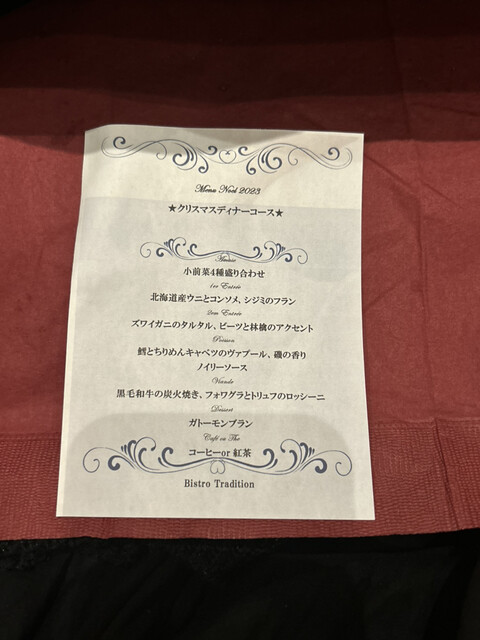 Menu Noël 2023
★クリスマスディナーコース★
Amuse
小前菜4種盛り合わせ
1er Entrée
北海道産ウニとコンソメ、シジミのフラン
2em Entrée
ズワイガニのタルタル、ビーツと林檎のアクセント
Poisson
鱈とちりめんキャベツのヴァプール、磯の香り
ノイリーソース
Viande
黒毛和牛の炭火焼き、フォワグラとトリュフのロッシーニ
Dessert
ガトーモンブラン
Café ou Thé
コーヒーor 紅茶
Bistro Tradition